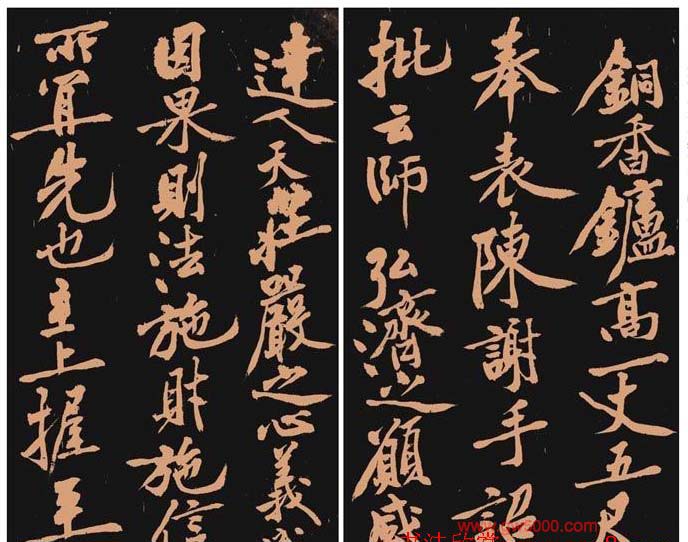 銅香鑪高一丈五尺
奉表陳謝手詔
批云師弘濟之願感
達人天莊嚴之心義
因果則法施財施信
所宜先也主上握至
书法欣赏